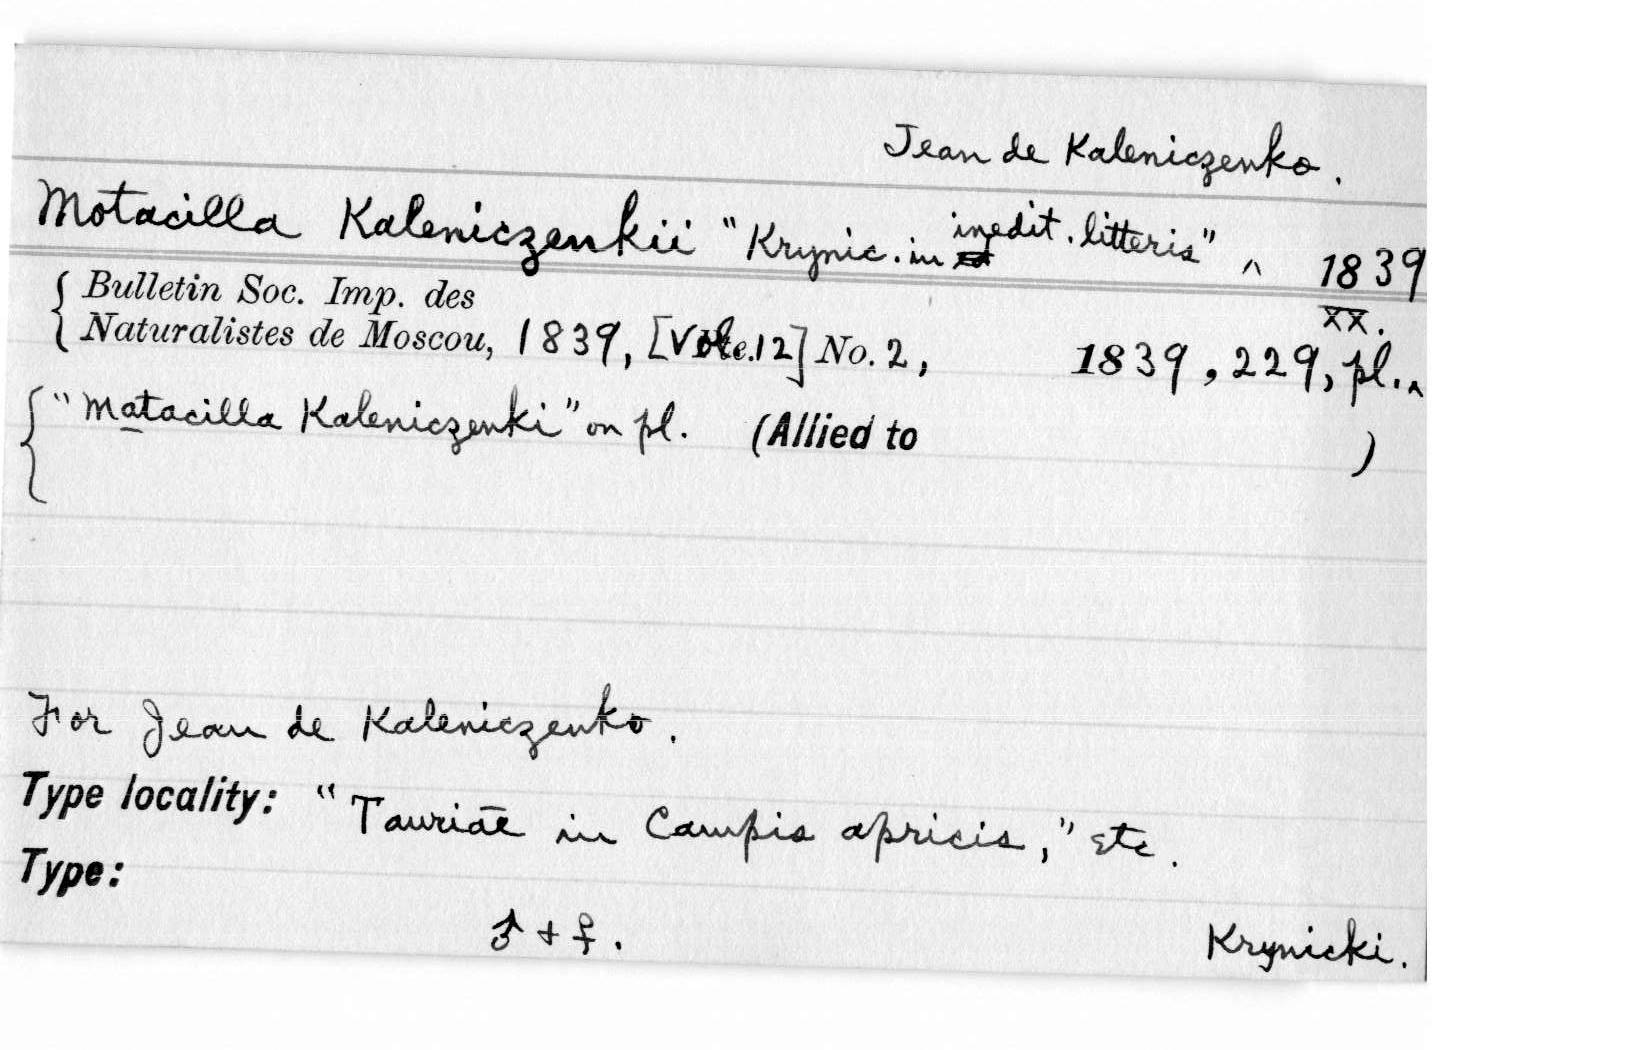 Jean de Kaleniczenko.
Motacilla Kaleniczenkii "Krynic. in inedit. litteris" ^ 1839
Bulletin Soc. Imp. des
Naturalistes de Moscou, 1839, [Vol.12] No. 2, 1839, 229, pl. ^ XX.
"Matacilla Kaleniczenki" on pl. (Allied to )
For Jean de Kaleniczenko.
Type locality: "Tauriae in Campis apricis," etc.
Type:
♂ + ♀.
Krynicki.